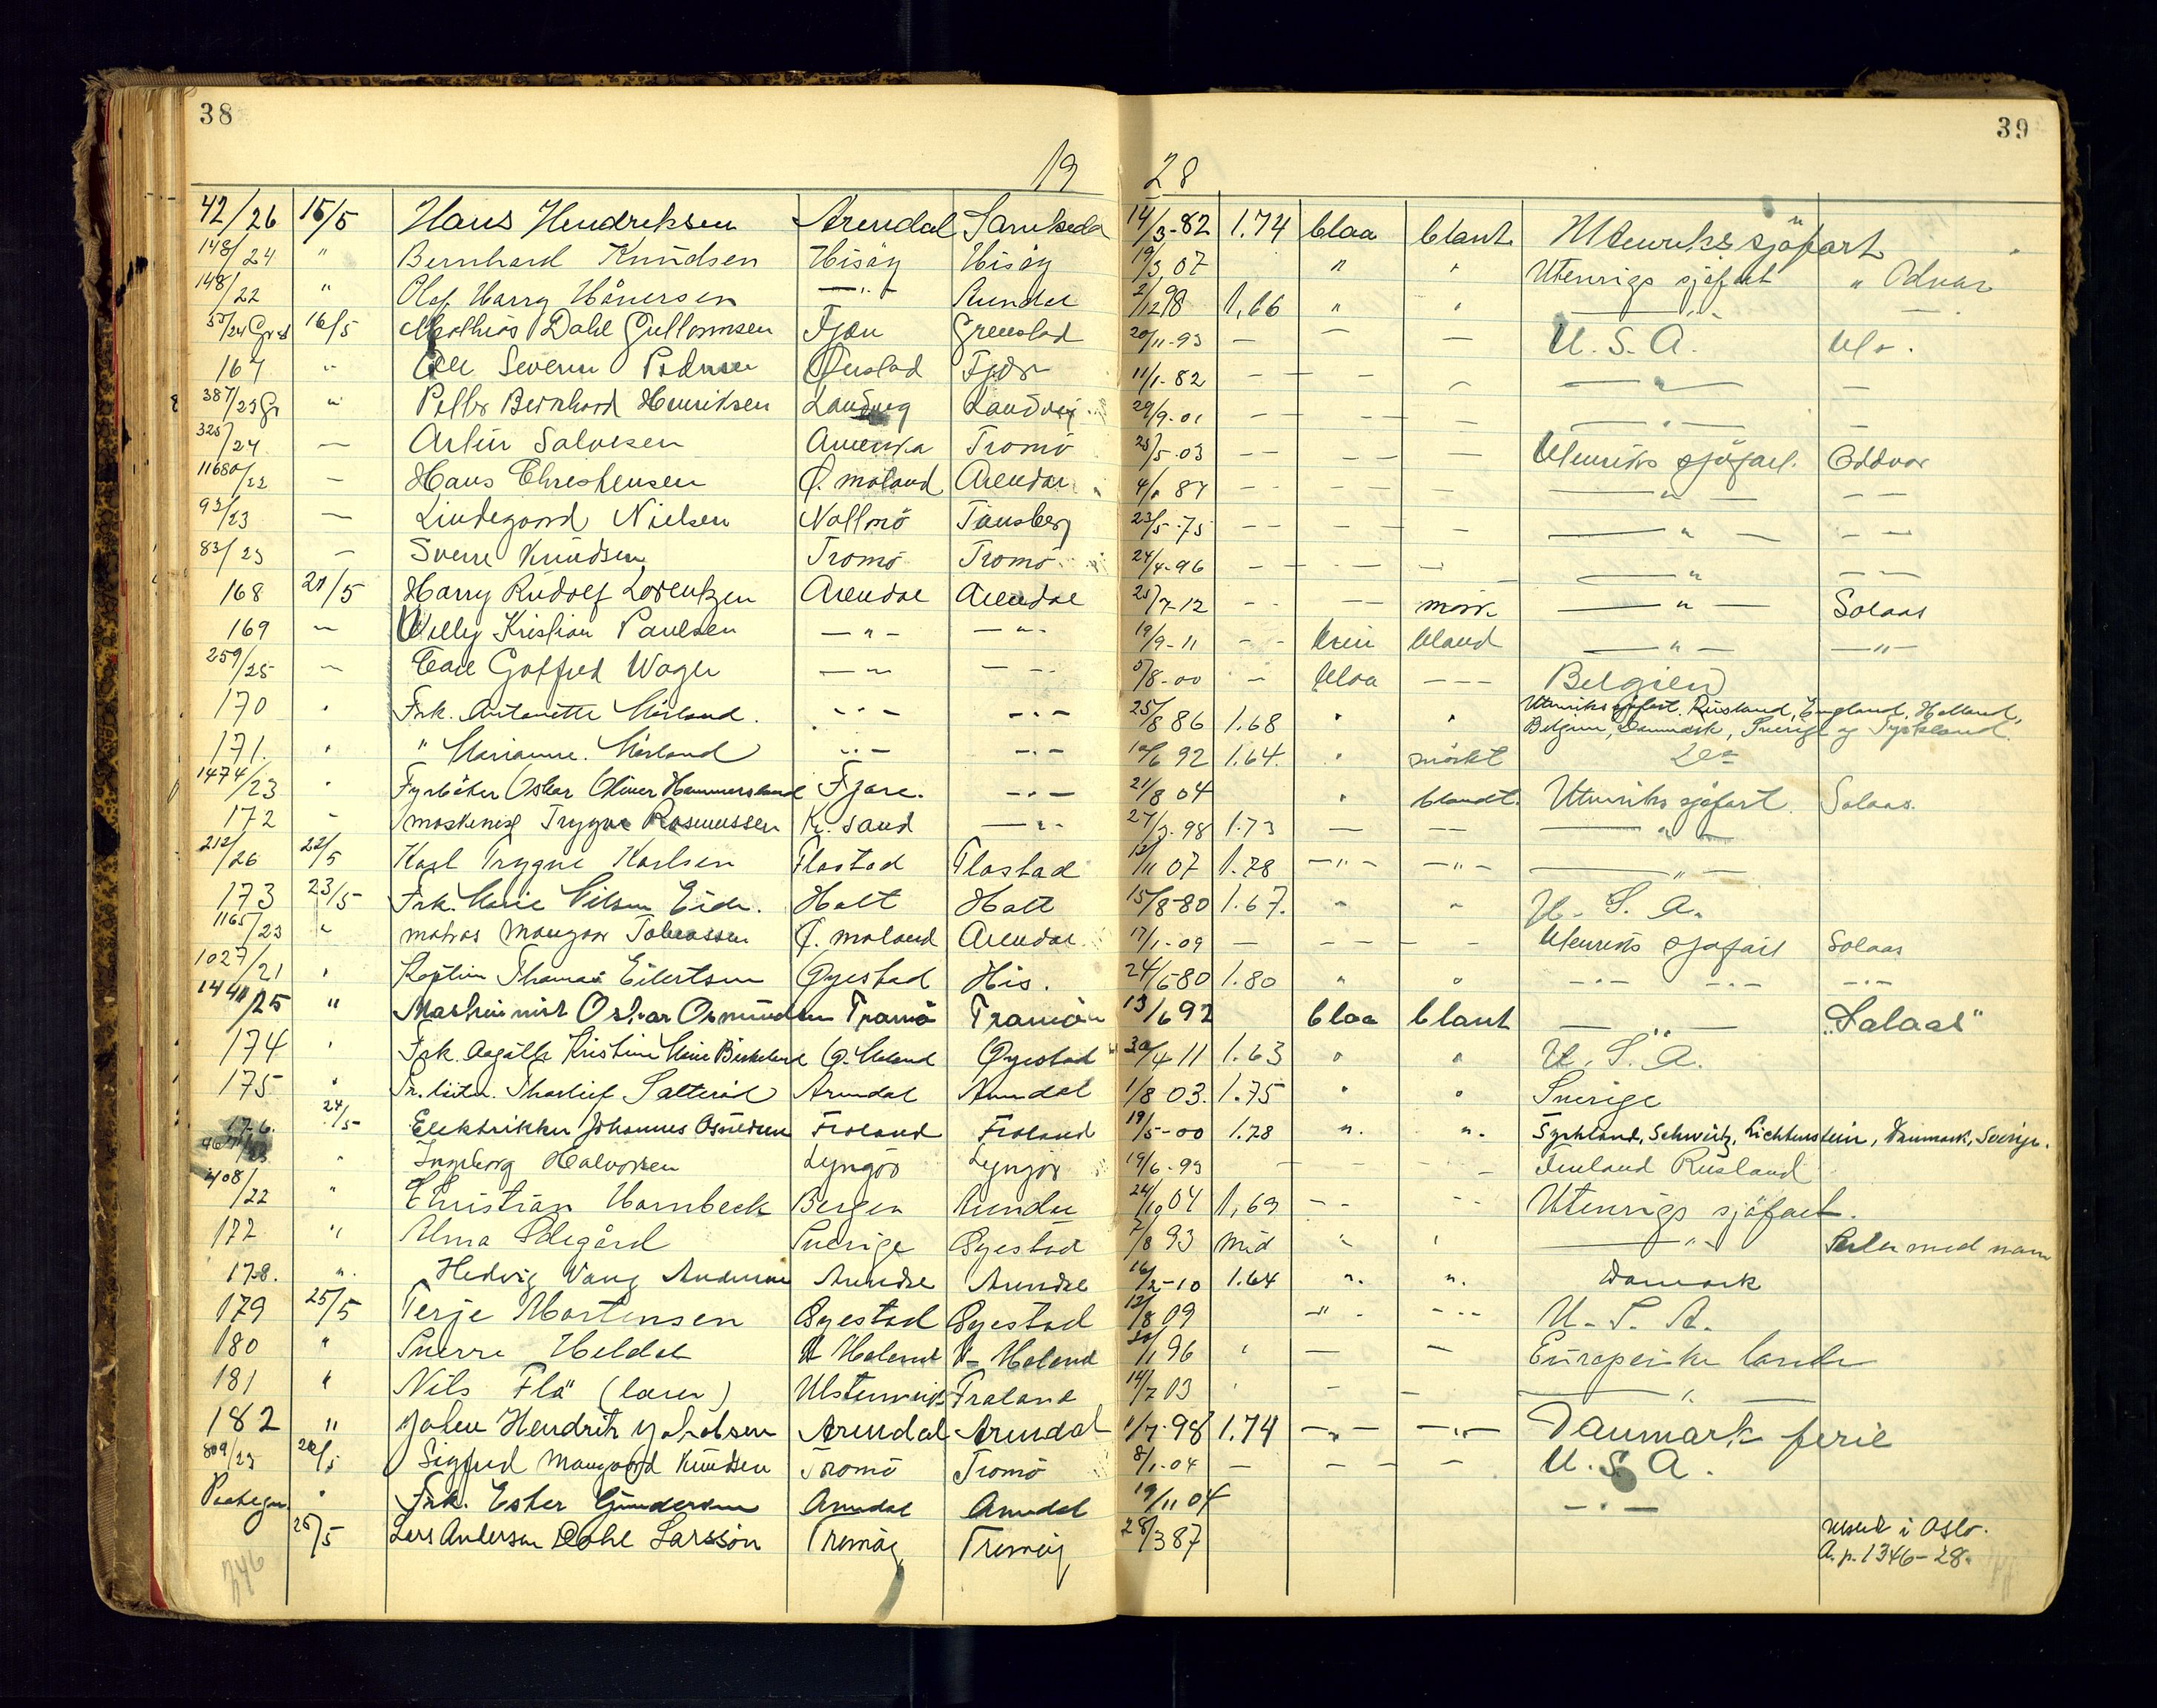 38
39
19 28
42/26 15/5 Hans Hendriksen Arendal 14/3-82 1.74 blaa blant Utenriks sjöfart
148/24 " Bernhard Knudsen Hisöy Hisöy 19/3 07 " " Utenrigs sjöfart
148/22 " Olaf Harry —"— 2/12 98 1,66 " " —"—
16/5 Mathias Dahl Gullormsen Fjære Grimstad 20/11-93 — — — U.S.A.
167 " Severin Pedersen 11/1-82 — — — —"— —
387/23 Gr " Bernhard Henriksen Landvig Landvig 29/9-01 — — — —"— —
325/24 — Artur Salvesen Amerika Tromö 25/5-03 — — — Utenriks sjöfart. Oddvar
11680/22 — Hans Christensen Ö. moland Arendal — — — —"— — —
93/23 — Lindegaard Nielsen Tønsberg 23/5-75 — — — —"— — —
83/23 — Sverre Knudsen Tromö Tromö 24/4-96 — — — —"— — —
168 21/5 Harry Rudolf Lorentzen Arendal Arendal 25/7-12 — — mörk —"— Solaas
169 — Willy Kristian Paulsen —"— —"— 19/9-11 — — brun bland —"— —"—
259/25 — Carl Gotfred Wager —"— — — 5/8-00 — blaa — — Belgien
170 " Frk. Antonette Mörland. —"— —"— 25/8 86 1.68 " " Utenriks sjöfart. Rusland, England, Holland,
Belgien, Danmark, Sverige og Tyskland.
171. " " Marianne. Mörland —"— —"— 10/6 92 1.64. " mörkt Do
1474/23 " Fyrböter Oskar Oliver Hammersland Fjære. —"— 21/8 04 " blandt. Utenriks sjöfart. Solaas.
172 — maskinist Trygve Rasmussen Kr. sand —"— 27/3-98 1.73 — — —"—
212/26 22/5 Karl Trygve Karlsen Flostad Flostad 12/11 07 1.78 —"— —"— —"—
173 23/5 Frk. Marie Nilsen Eide. Holt Holt 15/8-80 1.67. " " U. S. A.
1165/23 " matros Mangor Tobiassen Ö. moland Arendal 17/1-09 — — — Utenriks sjöfart Solaas
1027/21 " Kaptein Thomas Eilertsen Öyestad His. 24/5 80 1.80 " " —"— —"— —"—
1441/25 " Maskinist Oskar Osmundsen Tromö Tromö 13/6 92 blaa blant —"— „Solaas"
174 " Frk. Aagôt Kristine Marie Birkeland Ö. Moland Öyestad 30/4 11 1.63 " " U. S. A.
175 " Thorleif Arendal Arendal 1/8 03. 1.75 " " Sverige
176. 24/5 Elektriker Johannes Osuldsen Froland Froland 19/5-00 1.78 ". ". Tyskland, Schweitz, Lichtenstein, Danmark, Sverige.
" Ingeborg Halvorsen Lyngör Lyngör 19/6-93 — — — Finland Rusland
408/22 " Christian Hornbeck Bergen 1,69 — — Utenrigs sjöfart.
177 " Alma Ödegård Sverige Öyestad 7/8 93 Mid " " —"—
178. ". Hedvig Vang Andersen Arendal Arendal 16/2-10 1.64 ". ". Danmark
179 25/5 Terje Mortensen Öyestad Öyestad 12/8 09 —"— — — U. S. A.
180 " Sverre Heldal V Moland V-Moland — — Europeiske lande
181 " Nils Flå (lærer) Froland 14/7 03 " — — —"—
182 " Johan Hendrik Jakobsen Arendal Arendal 1/7-98 1.74 —"— —"— Danmark ferie
809/23 26/5 Sigfred Mangord Knudsen Tromö Tromö 8/1-04 — — — — U.S.A.
" Frk. Ester Gundersen Arendal Arendal 19/11 04 —"—
26/5 Lars Andersen Dahl Larsson Tromöy Tromöy 28/3 87 i Oslo.
A.p. 1346-28.
346